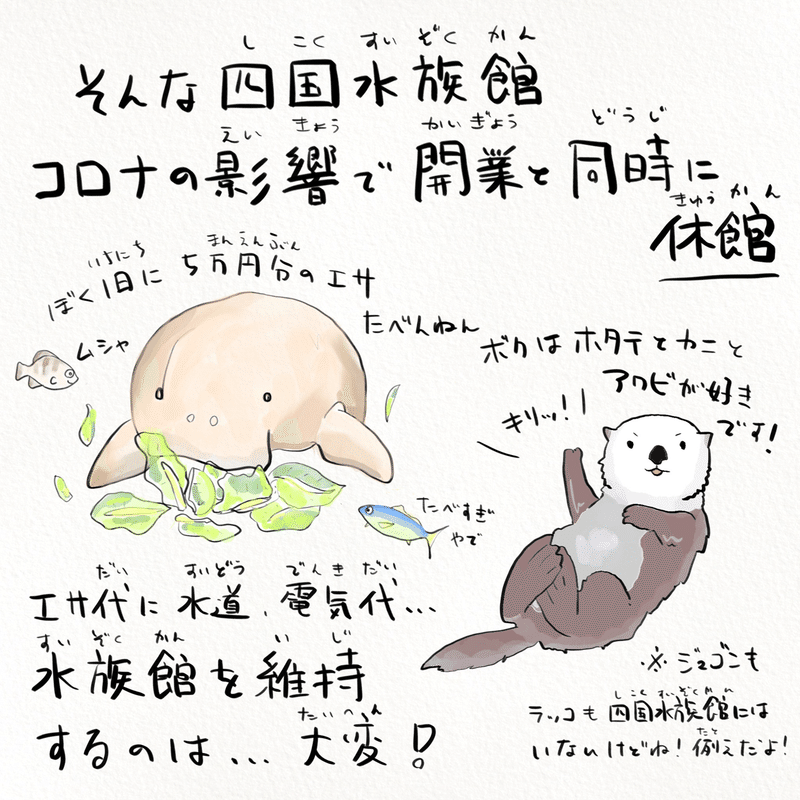 そんな四国水族館
しこくすいぞくかん
コロナの影響で開業と同時に
えいきょう かいぎょう どうじ
休館
きゅうかん
ぼく1日に5万円分のエサ
いちにち まんえんぶん
たべんねん
ムシャ
ボクはホタテとカニと
アワビが好き
です!
キリッ!!
たべすぎ
やで
エサ代に水道、電気代...
だい すいどう でんきだい
水族館を維持
すいぞくかん いじ
するのは...大変!
たいへん
※ジュゴンも
ラッコも四国水族館には
しこくすいぞくかん
いないけどね!例えだよ!
たと